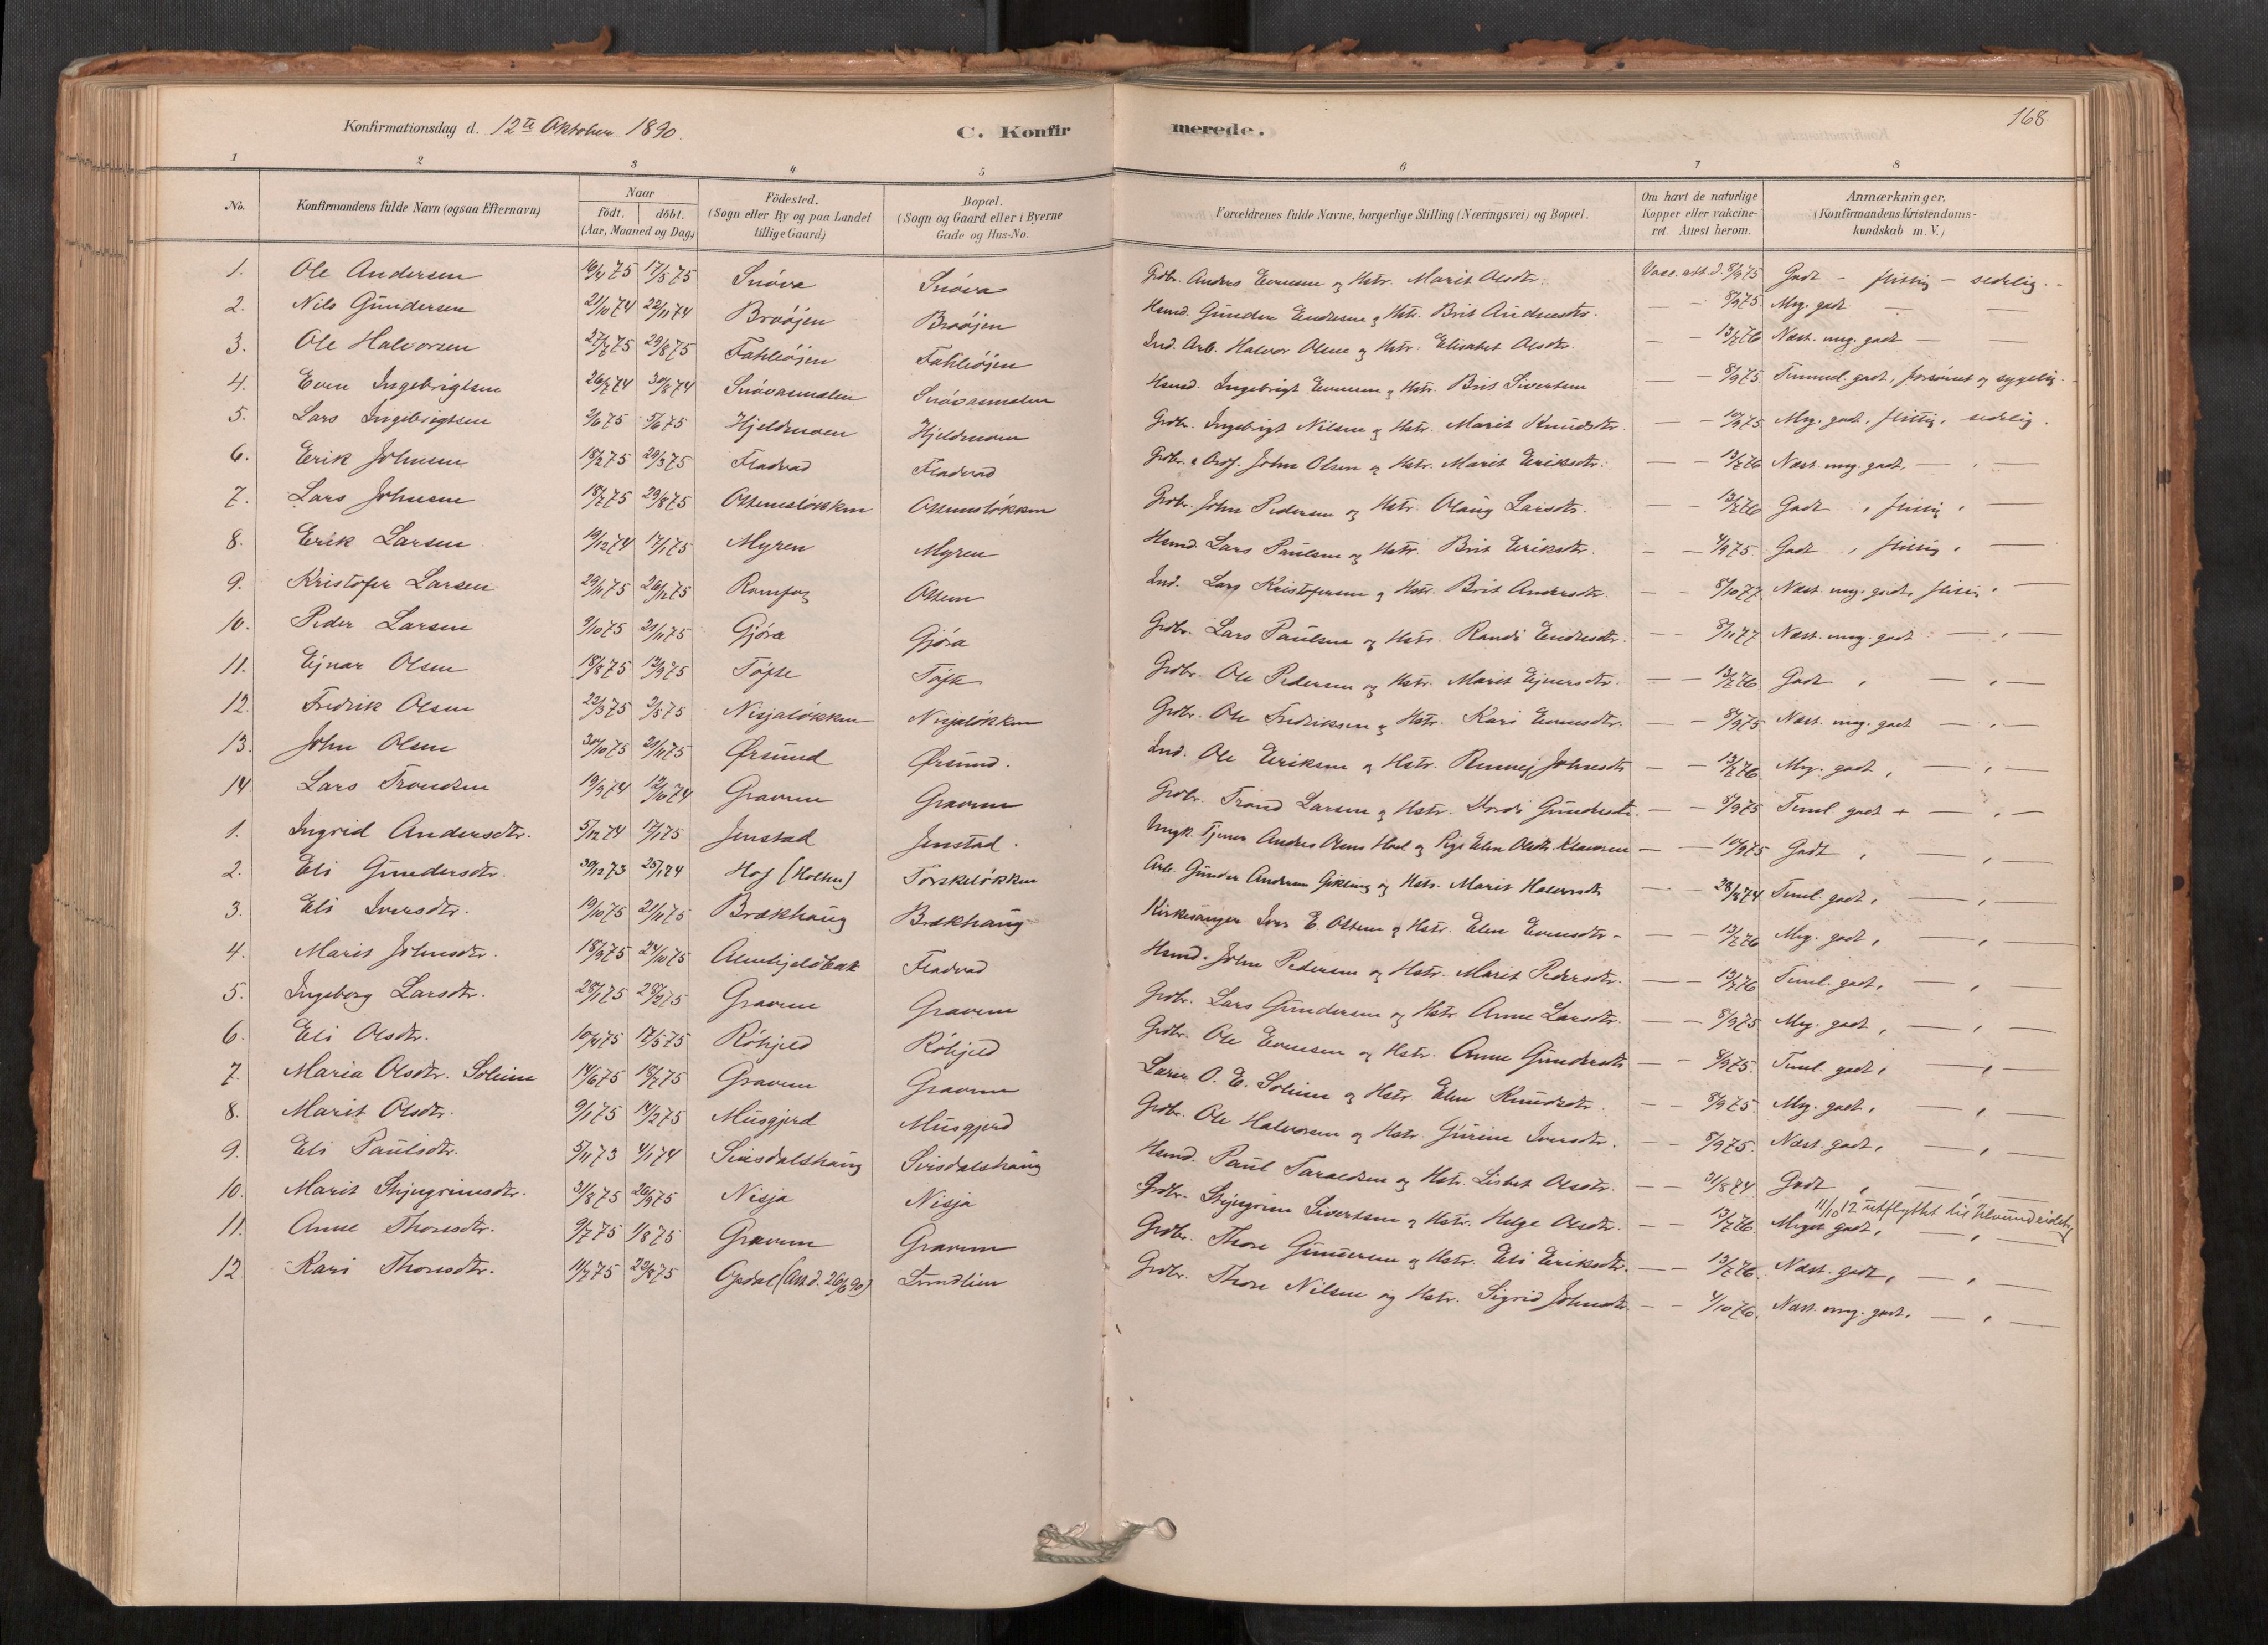 Konfirmationsdag d. 12te Oktober 1890. C. Konfirmerede. 168.
1 2 3 4 5 6 7 8
No. Konfirmandens fulde Navn (ogsaa Efternavn) Naar födt. döbt. (Aar, Maaned og Dag) Födested. (Sogn eller By og paa Landet tillige Gaard) Bopæl. (Sogn og Gaard eller i Byerne Gade og Hus-No. Forældrenes fulde Navne, borgerlige Stilling (Næringsvei) og Bopæl. Om havt de naturlige Kopper eller vakcineret. Attest herom. Anmærkninger. (Konfirmandens Kristendomskundskab m. V.)
1. Ole Andersen 16/4 75 17/5 75 Snøva Snøva Grdbr. Anders Evensen og Hstr. Marit Olsdtr. Vacc. att. d. 8/9 75 Godt - flittig - sedelig. -
2. Nils Gundersen 21/10 74 22/11 74 Braøjen Braøjen Hsmd. Gunder Endresen og Hstr. Brit Andersdtr. — - 8/9 75. Meg. godt — —
3. Ole Halvorsen 27/7 75 29/8 75 Fahleøjen Fahleøjen Ind. Arb. Halvor Olsen og Hstr. Elisabet Olsdtr. — - 13/7 76 Næst. meg. godt — —
4. Even Ingebrigtsen 26/7 74 30/8 74 Snøvasmælen Snøvasmælen Hsmd. Ingebrigt Evensen og Hstr. Brit Sivertsen — - 8/9 75. Temmel. godt, forsømt og sygelig.
5. Lars Ingebrigtsen 3/6 75 5/6 75 Hjeldmoen Hjeldmoen Grdbr. Ingebrigt Nilsen og Hstr. Marit Knudsdtr. — - 10/9 75 Meg. godt, flittig, sedelig.
6. Erik Johnsen 18/2 75 29/3 75 Fladvad Fladvad Grdbr. & Ordf. John Olsen og Hstr. Marit Eriksdtr. — - 13/7 76 Næst. meg. godt, — , —
7. Lars Johnsen 18/7 75 29/8 75 Ottemsløkken Ottemsløkken Grdbr. John Pedersen og Hstr. Olaug Larsdtr. — - 13/7 76 Godt , flittig , —
8. Erik Larsen 19/12 74 17/1 75 Myren Myren Hsmd. Lars Paulsen og Hstr. Brit Eriksdtr. - - 4/9 75. Godt , flittig , —
9. Kristofer Larsen 29/11 75 26/12 75 Romfog Ottem Ind. Lars Kristofersen og Hstr. Brit Andersdtr. — - 8/10 77. Næst. meg. godt, flittig, —
10. Peder Larsen 9/10 75 21/11 75 Gjøra Gjøra Grdbr. Lars Paulsen og Hstr. Randi Endresdtr. — - 8/11 77. Næst. meg. godt — , —
11. Ejnar Olsen 18/8 75 12/9 75 Tøfte Tøfte Grdbr. Ole Pedersen og Hstr. Marit Ejnersdtr. — — 13/7 76 Godt , — , —
12. Fredrik Olsen 22/3 75 2/5 75 Nisjaløkken Nisjaløkken Grdbr. Ole Fredriksen og Hstr. Kari Evensdtr. — - 8/9 75. Næst. meg. godt — , —
13. John Olsen 30/10 75 21/11 75 Ørsund Ørsund. Ind. Ole Eriksen og Hstr. Rønnej Johnsdtr — - 13/7 76. Meg. godt, — , —
14 Lars Trondsen 19/9 74 12/10 74 Gravem Gravem Grdbr. Trond Larsen og Hstr. Mordi Gundersdtr. — - 8/9 75 Teml. godt + — , —
1. Ingrid Andersdtr. 5/12 74 17/1 75 Jenstad Jenstad. Ungk. Tjener Andres Olsen Hoel og Pige Elen Olsdtr. — - 10/9 75 Godt , — , —
2. Eli Gundersdtr. 30/12 73 25/1 74 Hof (Holten) Torskeløkken Arb. Gunder Andersen Gikling og Hstr. Marit Halvorsdtr — - 28/8 74 Teml. godt, — , —
3. Eli Iversdtr. 19/10 75 21/11 75 Brækhaug Brækhaug Kirkesanger Iver E. Ottem og Hstr. Elen Evensdtr - — - 13/7 76 Meg. godt, — , —
4. Marit Johnsdtr. 18/9 75 24/10 75 Almskjeldbak Fladvad Hsmd. John Pedersen og Hstr. Marit Pedersdtr. — - 13/7 76 Teml. godt, — , —
5. Ingeborg Larsdtr. 28/1 75 28/2 75 Gravem Gravem Grdbr. Lars Gundersen og Hstr. Anne Larsdtr. — - 8/9 75. Meg. godt, — , —
6. Eli Olsdtr. 10/4 75 17/5 75 Røhjeld Røhjeld Grdbr. Ole Evensen og Hstr. Anne Gundersdtr — - 8/9 75. Teml. godt, — , —
7. Maria Olsdtr. Soleim 14/6 75 18/7 75 Gravem Gravem Lærer O. E. Soleim og Hstr. Elen Knudsdtr. — - 8/9 75. Meg. godt, — , —
8. Marit Olsdtr. 9/1 75 14/2 75 Musgjerd Musgjerd Grdbr. Ole Halvorsen og Hstr. Gurine Iversdtr. — - 8/9 75. Næst. godt, — , —
9. Eli Paulsdtr. 5/11 73 4/1 74 Svisdalshaug Svisdalshaug Hsmd. Paul Taraldsen og Hstr. Lisbet Olsdtr. — - 31/8 74. Godt , — , —
11/10 12 utflyttet til
10. Marit Stjngrimsdtr. 31/8 75 26/9 75 Nisja Nisja Grdbr. Stjngrim Sivertsen og Hstr. Helge Olsdtr. — - 13/7 76. Meget godt, — , —
11. Anne Thoresdtr. 9/7 75 1/8 75 Gravem Gravem Grdbr. Thore Gundersen og Hstr. Eli Eriksdtr. — - 13/7 76. Næst. godt, — , —
12. Kari Thoresdtr. 11/7 75 22/8 75 Opdal (Att. d. 26/6 90) Lundlien Grdbr. Thore Nilsen og Hstr. Sigrid Johnsdtr. - - 4/10 76. Næst. meg. godt, — , —